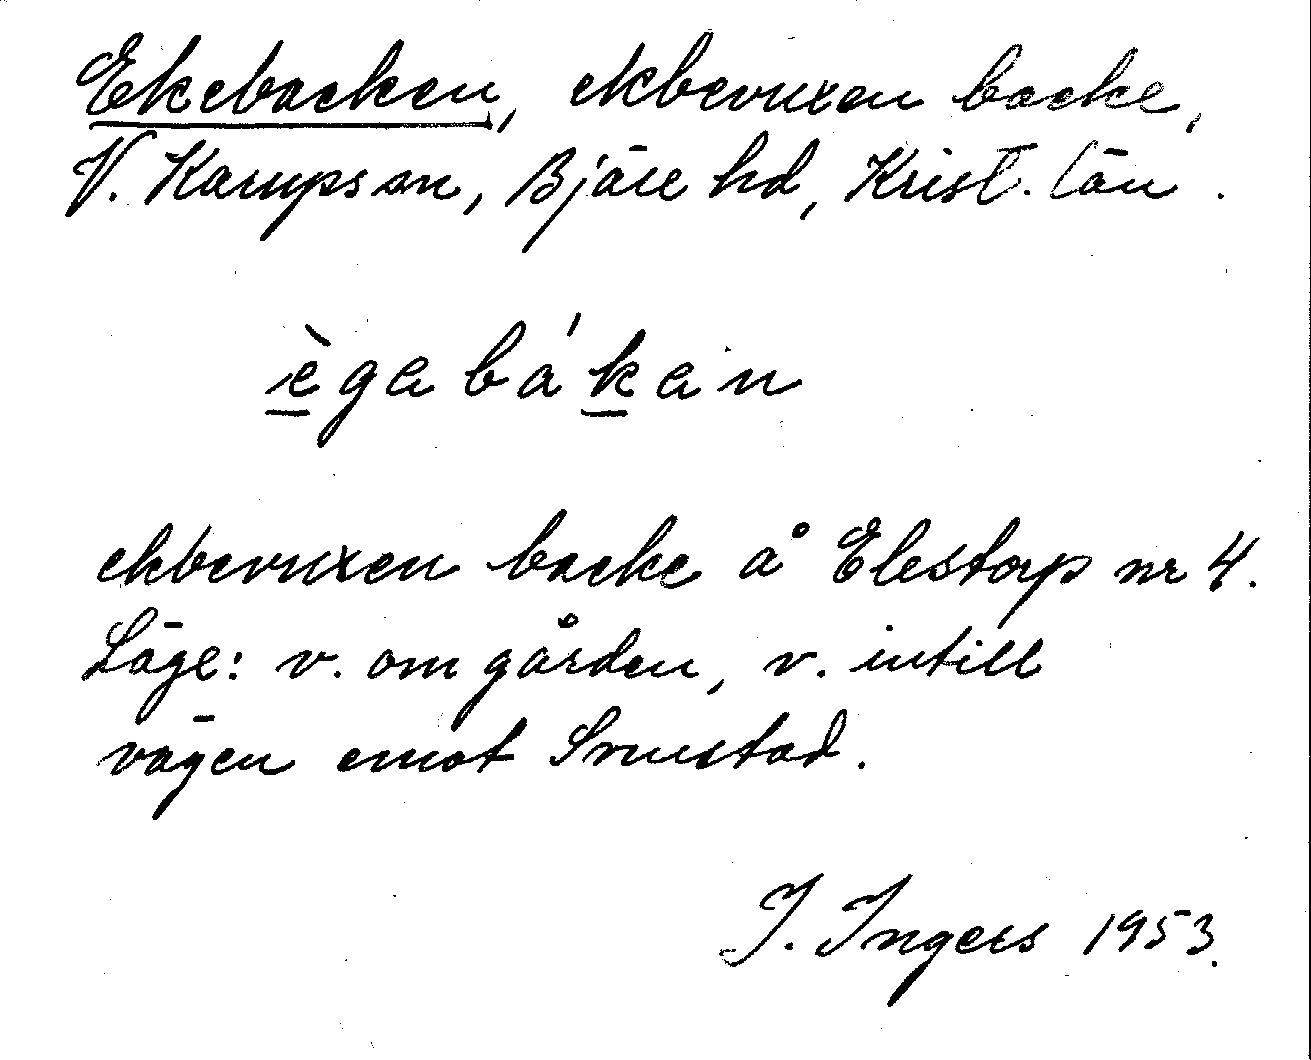 Ekebacken, ekbevuxen backe,
V. Karups sn, Bjäre hd, Krist. län.
ègabákan
ekbevuxen backe å Elestorp nr 4.
Läge: v. om gården, v. intill
vägen emot Smustad.
I. Ingers 1953.